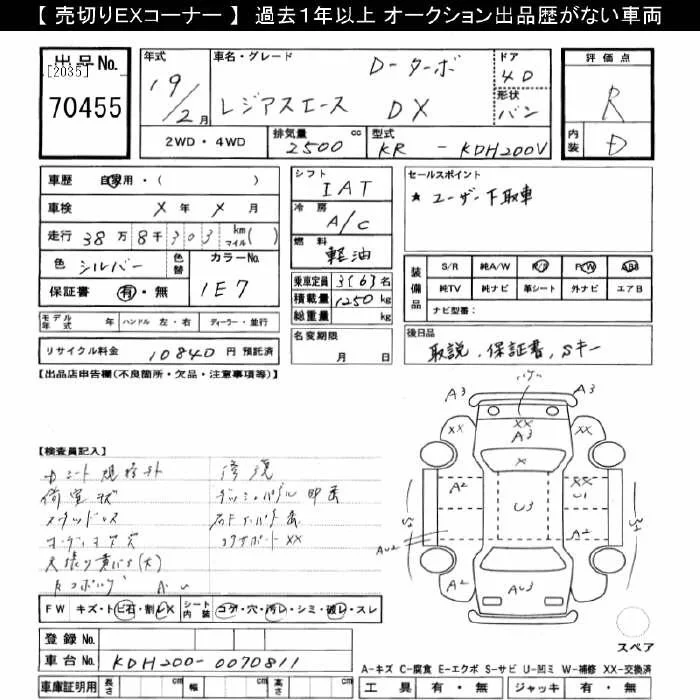 【 売切りEXコーナー 】 過去1年以上 オークション出品歴がない車両
出品No.
[2035]
70455
年式
19/2月
車名・グレード
D-ターボ
レジアスエース DX
ドア
4D
形状
バン
評価点
R
内装
D
2WD・4WD
排気量
2500 cc
型式
KR - KDH200V
車歴 自家用・( )
車検 X年 X月
走行 38万8千303 km マイル( )
色 シルバー 色替
カラーNo. 1E7
保証書 有・無
シフト
IAT
冷房
A/C
燃料
軽油
乗車定員 3(6)名
積載量 1250 kg
総重量 kg
セールスポイント
★ユーザー下取車
装備品
S/R 純A/W P/S P/W ABS
純TV 純ナビ 革シート 外ナビ エアB
ナビ型番:
モデル年式 年 ハンドル 左・右 ディーラー・並行
リサイクル料金 10840 円 預託済
名変期限
月 日
後日品
取説、保証書、Sキー
【出品店申告欄(不良箇所・欠品・注意事項等)】
【検査員記入】
修復
荷室キズ
FW キズ・ト ビ石・割レX シート内装 コゲ・穴・汚レ・シミ・破レ・スレ
登録No.
車台No. KDH200-0070811
車庫証明用 長さ cm 幅 cm 高さ cm
A3
A3
XX
XX
XX
A3
X
A2
XX
U1
U3
A2
AU2
A2
AU3
スペア
A-キズ C-腐食 E-エクボ S-サビ U-凹ミ W-補修 XX-交換済
工具 有・無 ジャッキ 有・無